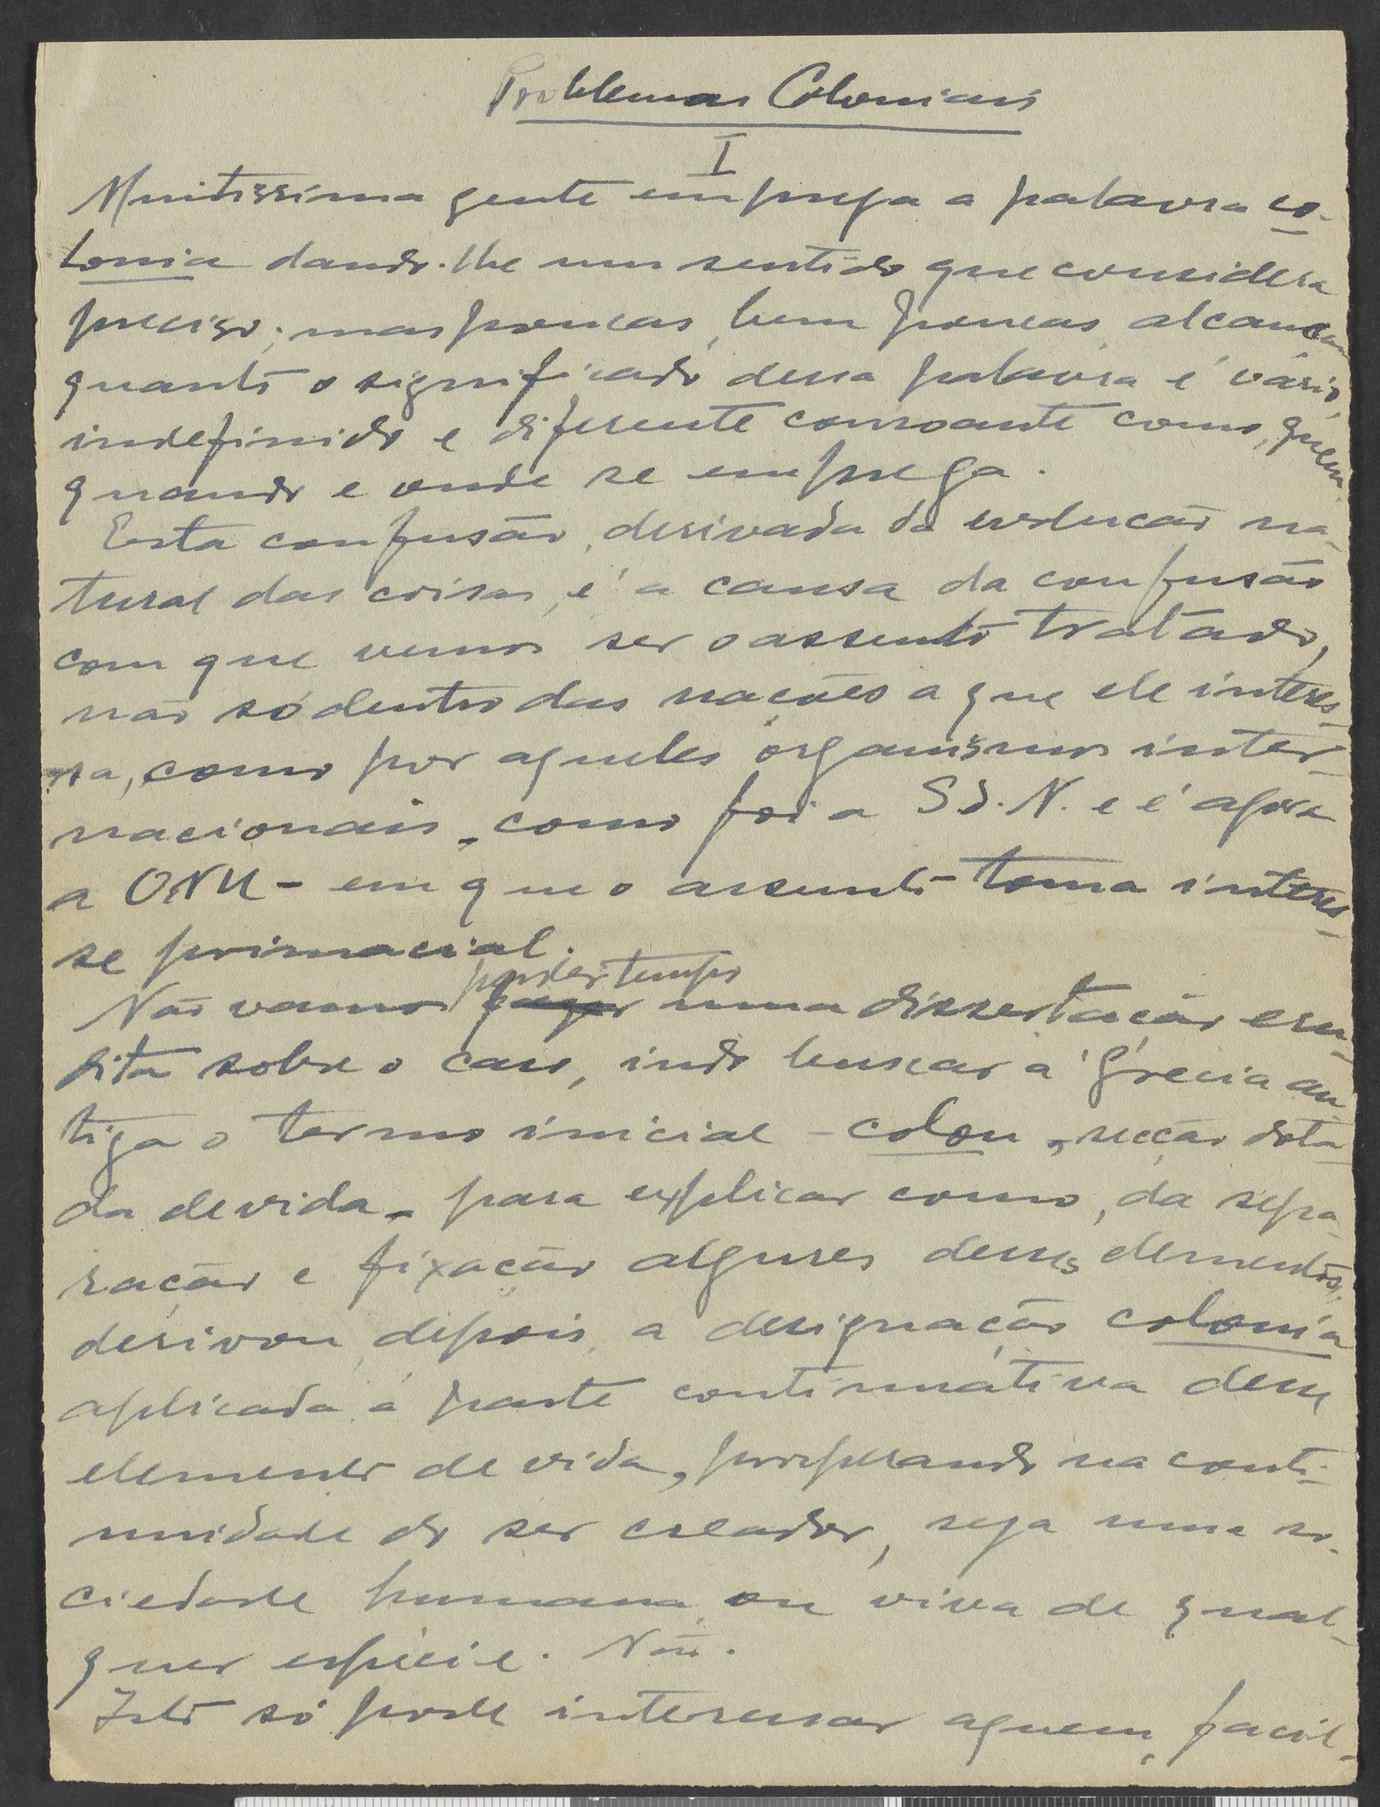 Problemas Coloniais
I
Muitissima gente emprega a palavra co-
lonia dando-lhe um sentido que considera
preciso; mas poucas, bem poucas, alcançam
quanto o significado dessa palavra é vário,
indefinido e diferente consoante como, quem,
quando e onde se emprega.
Esta confusão, derivada da evolução na-
tural das coisas, é a causa da confusão
com que vemos ser o assunto tratado,
não só dentro das nações a que ele interes-
sa, como por aqueles organismos inter-
nacionais - como foi a S.D.N. e é agora
a ONU - em que o assunto toma interes-
se primacial.
perder tempo
Não vamos fazer numa dissertação eru-
dita sobre o caso, indo buscar á Grecia an-
tiga o termo inicial - colon, secção dota-
da de vida - para explicar como, da sepa-
ração e fixação algures desses elementos,
derivou, depois, a designação colonia
aplicada á parte continuativa desse
elemento de vida, prosperando na conti-
nuidade do ser creador, seja uma so-
ciedade humana ou viva de qual-
quer espécie. Não.
Isto só pode interessar a quem, facil-